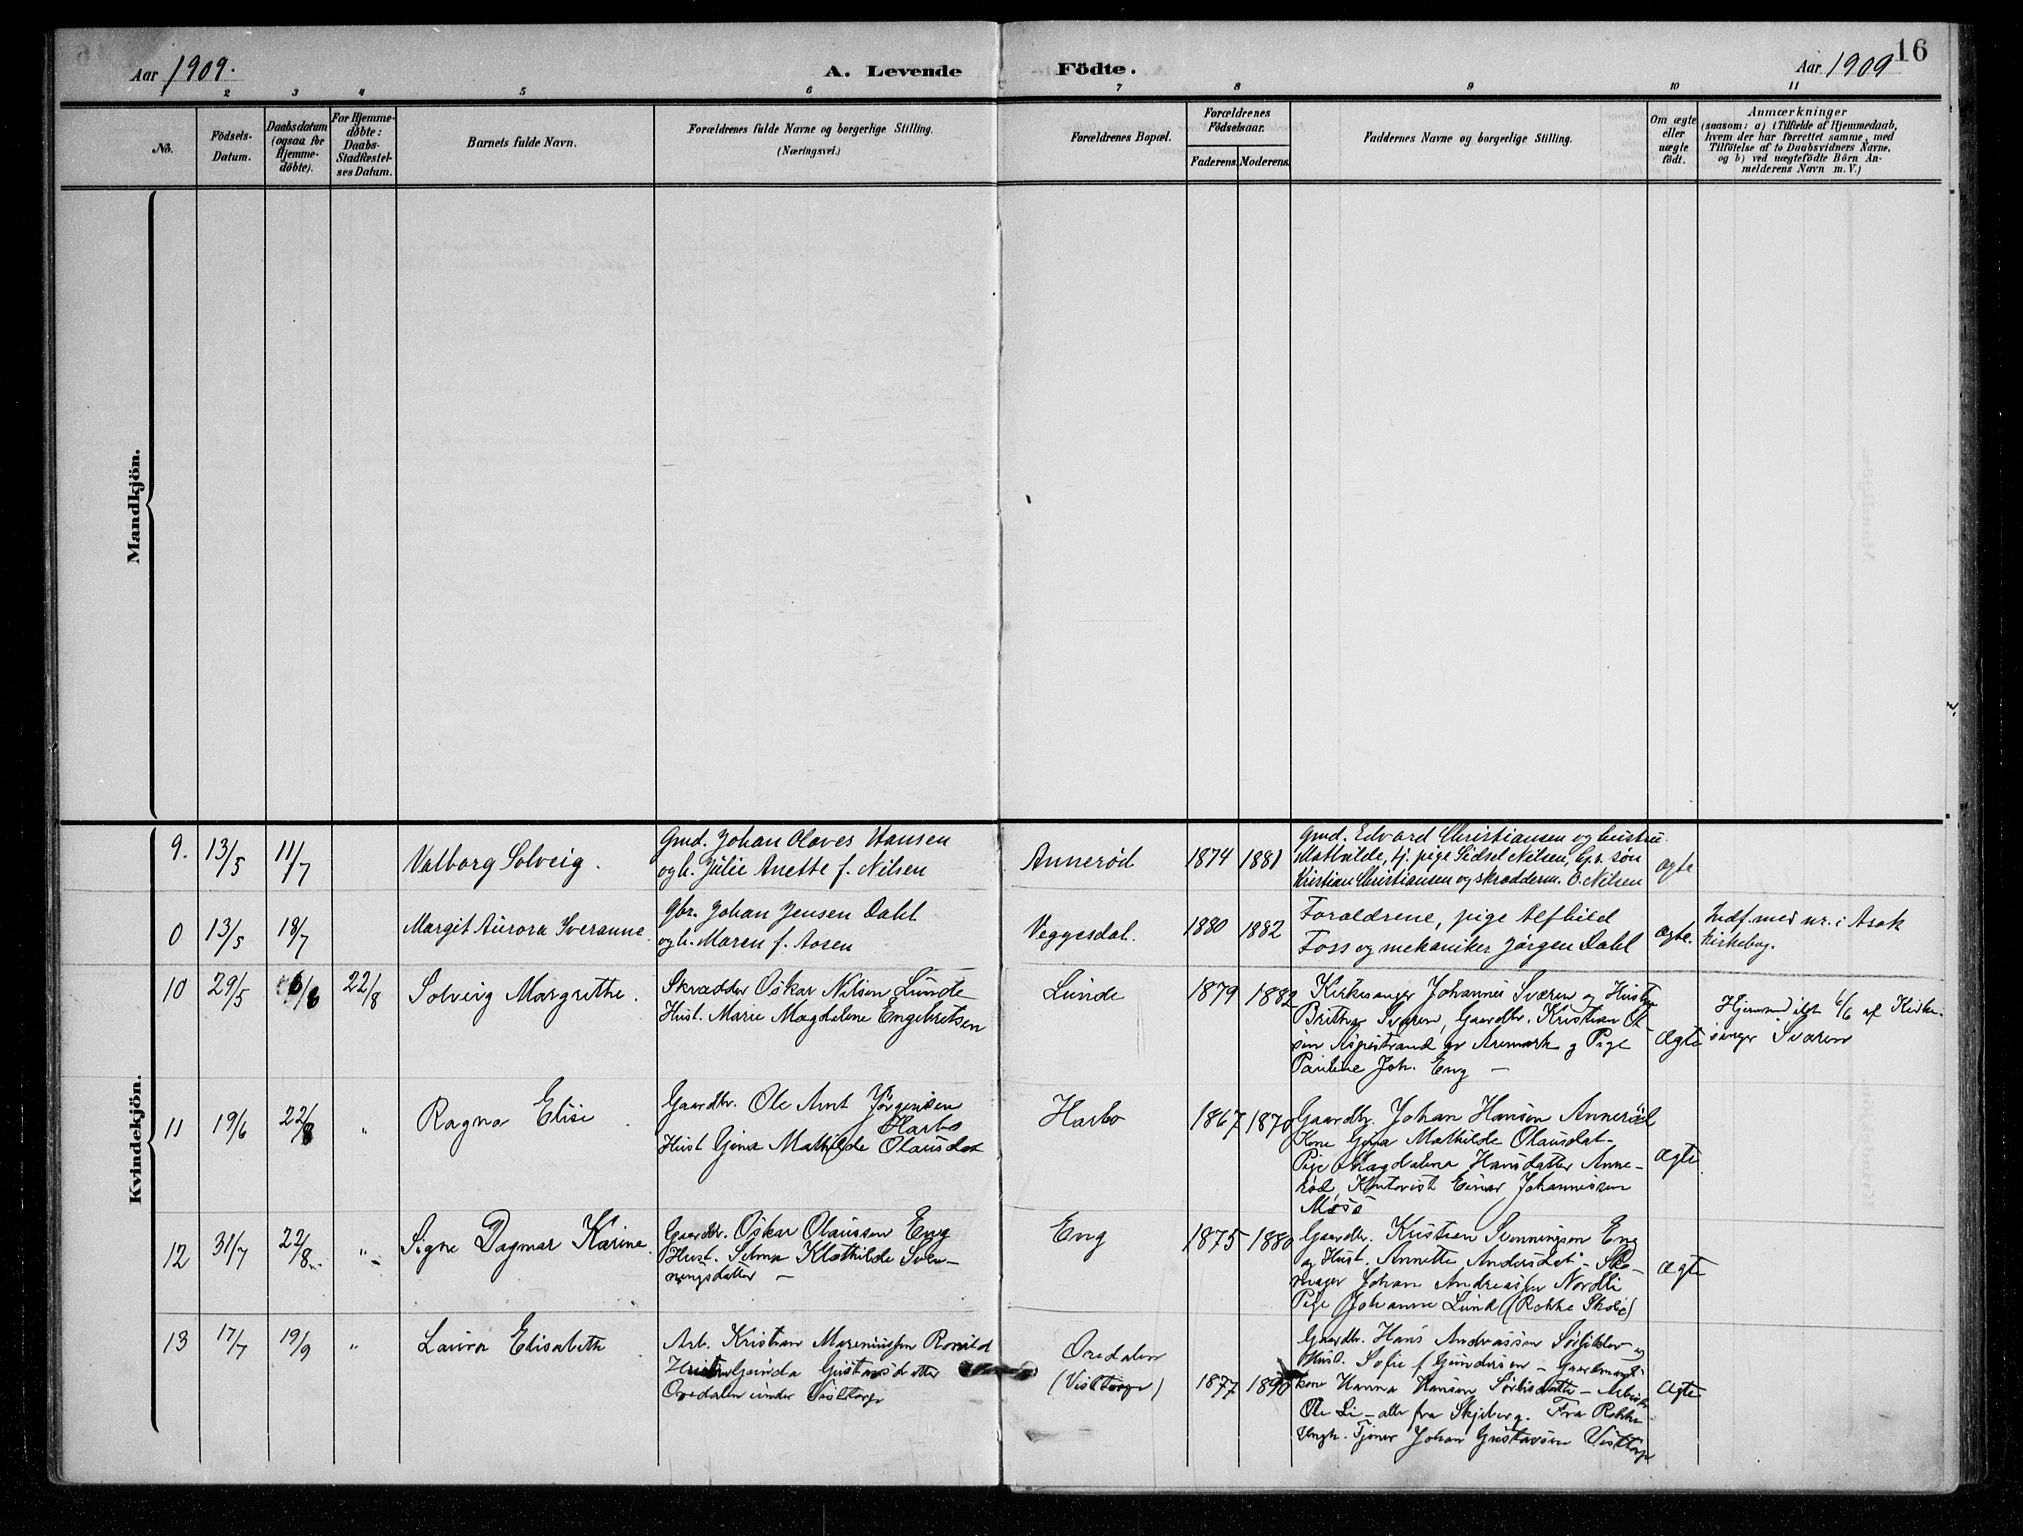 Aar 1909.
A. Levende Födte.
Aar 1909
16
1 2 3 4 5 6 7 8 9 10 11
Nö.
Födsels-
Datum.
Daabsdatum
(ogsaa for
Hjemme-
döbte).
For Hjemme-
döbte:
Daabs-
Stadfæstel-
ses Datum.
Barnets fulde Navn.
Forældrenes fulde Navne og borgerlige Stilling.
(Næringsvei.)
Forældrenes Bopæl.
Forældrenes
Födselsaar.
Faderens. Moderens.
Faddernes Navne og borgerlige Stilling.
Om ægte
eller
uægte
födt.
Anmærkninger
(saasom: a) i Tilfælde af Hjemmedaab,
hvem der har forrettet samme, med
Tilföielse af to Daabsvidners Navne.
og b) ved uægtefödte Börn An-
melderens Navn m. V.)
Mandkjön.
Kvindekjön.
9. 13/5 11/7
Valborg Solveig.
Gmd. Johan Olaves Hansen
og h. Julie Anette f. Nilsen
Annerød
1874 1881
Gmd. Edvard Christiansen og hustru
Mathilde, tj. pige Sidsel Nilsen, Gr. søn
Kristian Christiansen og skrædderm. O. Nilsen
ægte
0 13/5 18/7
Margit Aurora Iveranne.
Gbr. Johan Jensen Dahl
og h. Maren f. Aosen
Veggesdal.
1880 1882
Forældrene, pige Alfhild
Foss og mekaniker Jørgen Dahl
ægte.
Indf. med nr. i Asak
kirkebog.
10 29/5 6/6 22/8
Solveig Margrethe.
Skrædder Oskar Nilsen Lunde
Hust. Marie Magdalene Engebretsen
Lunde
1879 1882
Kirkesanger Johannes Sværen og Hustru
Brithe Sværen, Gaardbr. Kristian Ol
sen Aspestrand av Aremark og Pige
Pauline Joh. Eng —
Ægte
Hjemmedøbt 6/6 af Kirke-
sanger Sværen
11 19/6 22/8 "
Ragna Elise
Gaardbr. Ole Amt Jørgensen
Harbo
Hust Gina Mathilde Olausdat
Harbo
1867 1870
Gaardbr. Johan Hansen Annerød
Kone Gina Mathilde Olausdat-
Pige Magdalena Hansdatter Anne-
rød, Kontorist Einar Johannessen
Moss
Ægte
12 31/7 22/8 "
Signe Dagmar Karine.
Gaardbr. Oskar Olaussen Eng
Hust. Selma Klothilde Sven-
ningsdatter —
Eng
1875 1880
Gaardbr. Kristian Svenningsen Eng
og Hust. Annette Andersdat - Sko-
mager Johan Andreassen Nordli
Pige Johanne Lund (Rokke Skole)
Ægte
13 17/7 19/9 "
Laura Elisabeth
Arb. Kristian Mareniussen
Hustru Gunda Gustavsdatter
Oredalen under Visttorp
Oredalen
(Visttorp)
1877 1890
Gaardbr. Hans Andreassen og
Hust. Sofie f Gundersen - Gaardmands-
kone Hanna Hansen
Ole Li - alle fra Skjeberg. Fra Rokke
Ungk. Tjener Johan Gustavsen Visttorp
Ægte